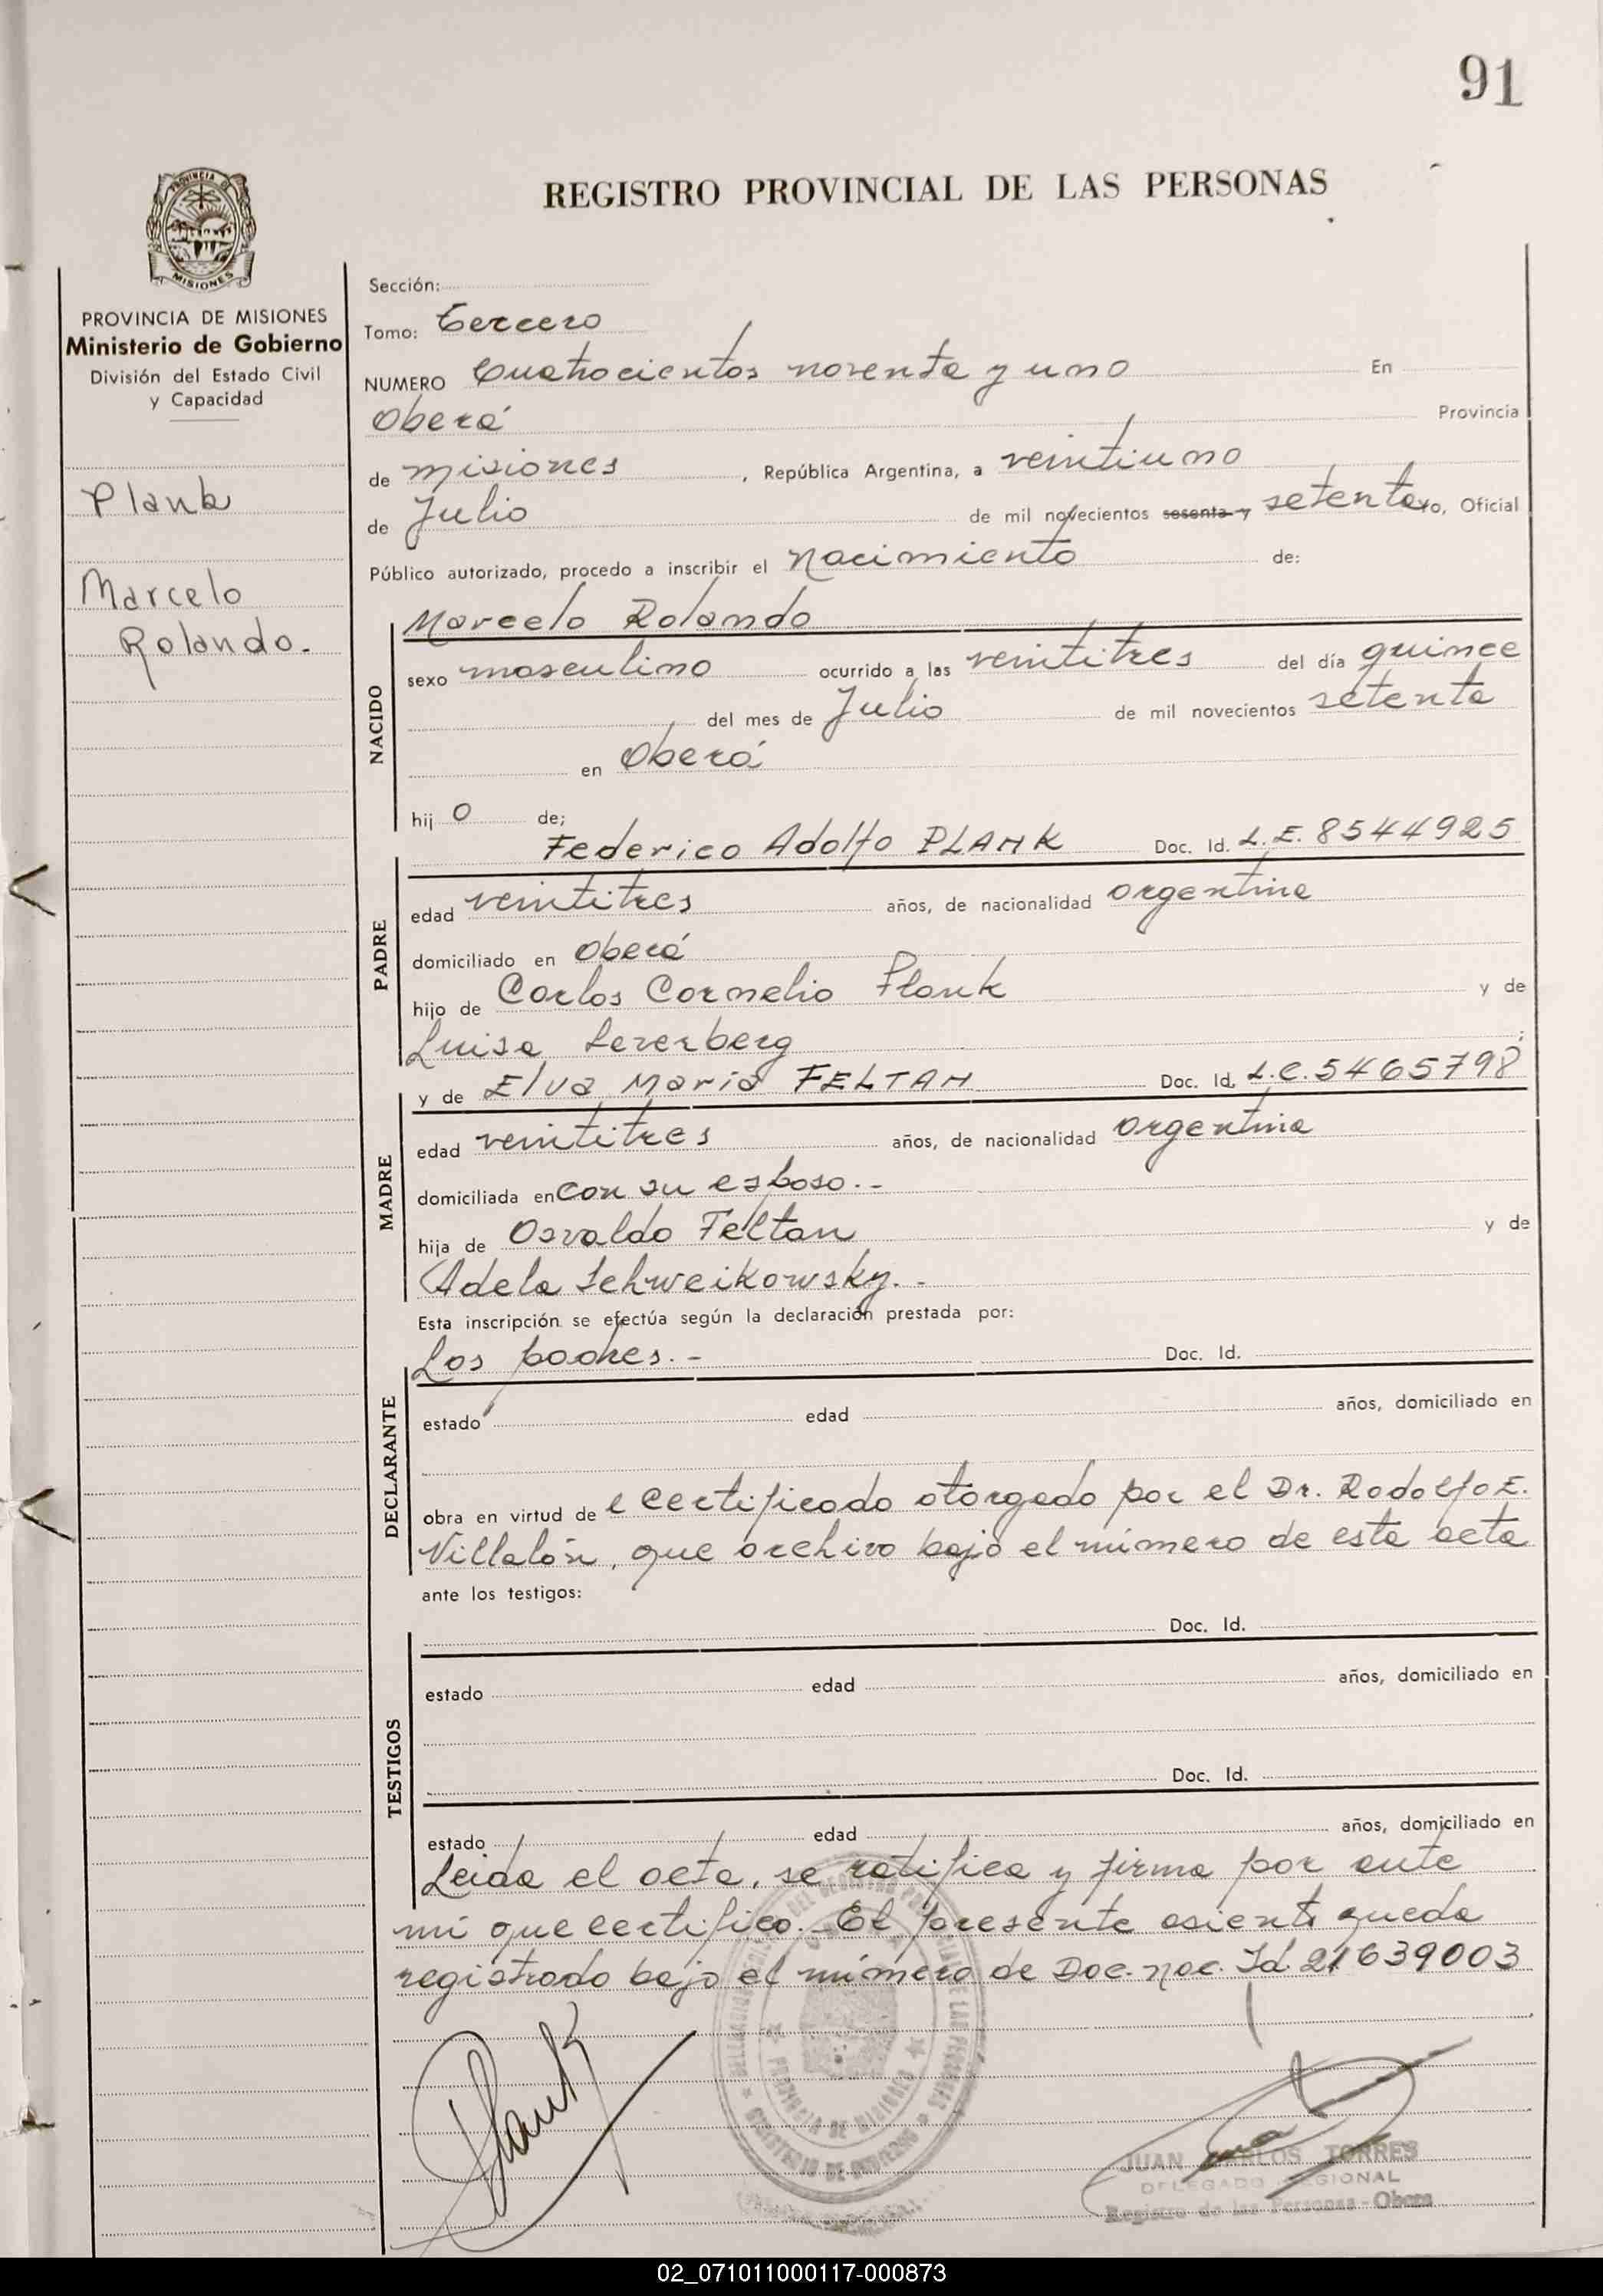 91
REGISTRO PROVINCIAL DE LAS PERSONAS
PROVINCIA DE MISIONES
Ministerio de Gobierno
División del Estado Civil
y Capacidad
Plank
Marcelo
Rolando.
Sección:
Tomo: Tercero
NUMERO Cuatrocientos noventa y uno En
Oberá Provincia
de misiones, República Argentina, a veintiuno
de Julio de mil novecientos sesenta y setenta yo, Oficial
Público autorizado, procedo a inscribir el Nacimiento de:
Marcelo Rolando
NACIDO
sexo masculino ocurrido a las veintitres del día quince
del mes de Julio de mil novecientos setenta
en Oberá
hij o de;
Federico Adolfo PLANK Doc. Id. L.E. 8544925
PADRE
edad veintitres años, de nacionalidad argentina
domiciliado en Oberá
hijo de Carlos Cornelio Plank y de
Luisa Lererberg;
y de Elva Maria FELTAN Doc. Id. L.C. 5465798
MADRE
edad veintitres años, de nacionalidad argentina
domiciliada en con su esposo.-
hija de Osvaldo Feltan y de
Adela Schweikowsky.-
Esta inscripción se efectúa según la declaración prestada por:
Los padres.- Doc. Id.
DECLARANTE
estado edad años, domiciliado en
obra en virtud de l certificado otorgado por el Dr. Rodolfo E.
Villalón, que archivo bajo el número de esta acta
ante los testigos:
Doc. Id.
TESTIGOS
estado edad años, domiciliado en
Doc. Id.
estado edad años, domiciliado en
Leida el acta, se ratifica y firma por ante
mi que certifico. El presente asiento queda
registrado bajo el número de Doc. nac. Id. 21639003
Plank
JUAN CARLOS TORRES
DELEGADO REGIONAL
Registro de las Personas - Obera
02_071011000117-000873